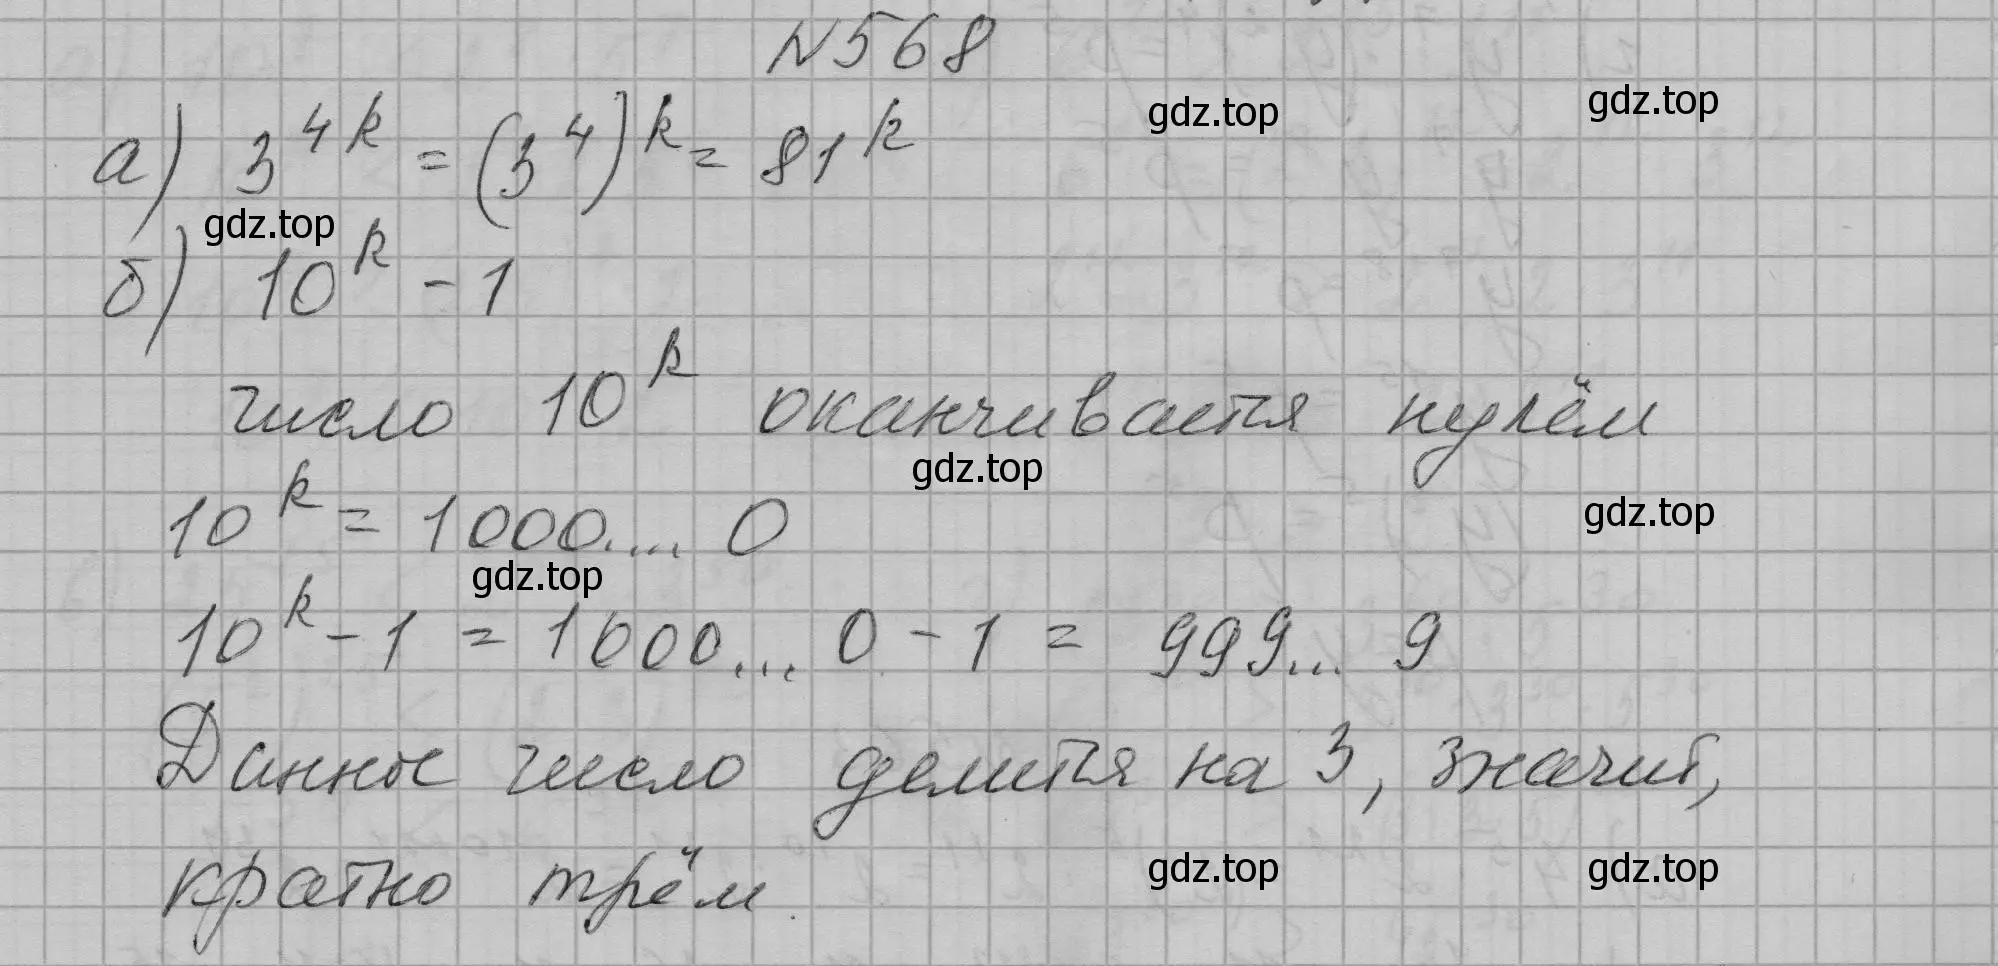 N568
а) 3^{4k} = (3^4)^k = 81^k
б) 10^k - 1
число 10^k оканчивается нулём
10^k = 1000.... 0
10^k - 1 = 1000... 0 - 1 = 999... 9
Данное число делится на 3, значит,
кратно трём.
gdz.top
gdz.top
gdz.top
gdz.top
gdz.top
gdz.top
gdz.top
gdz.top